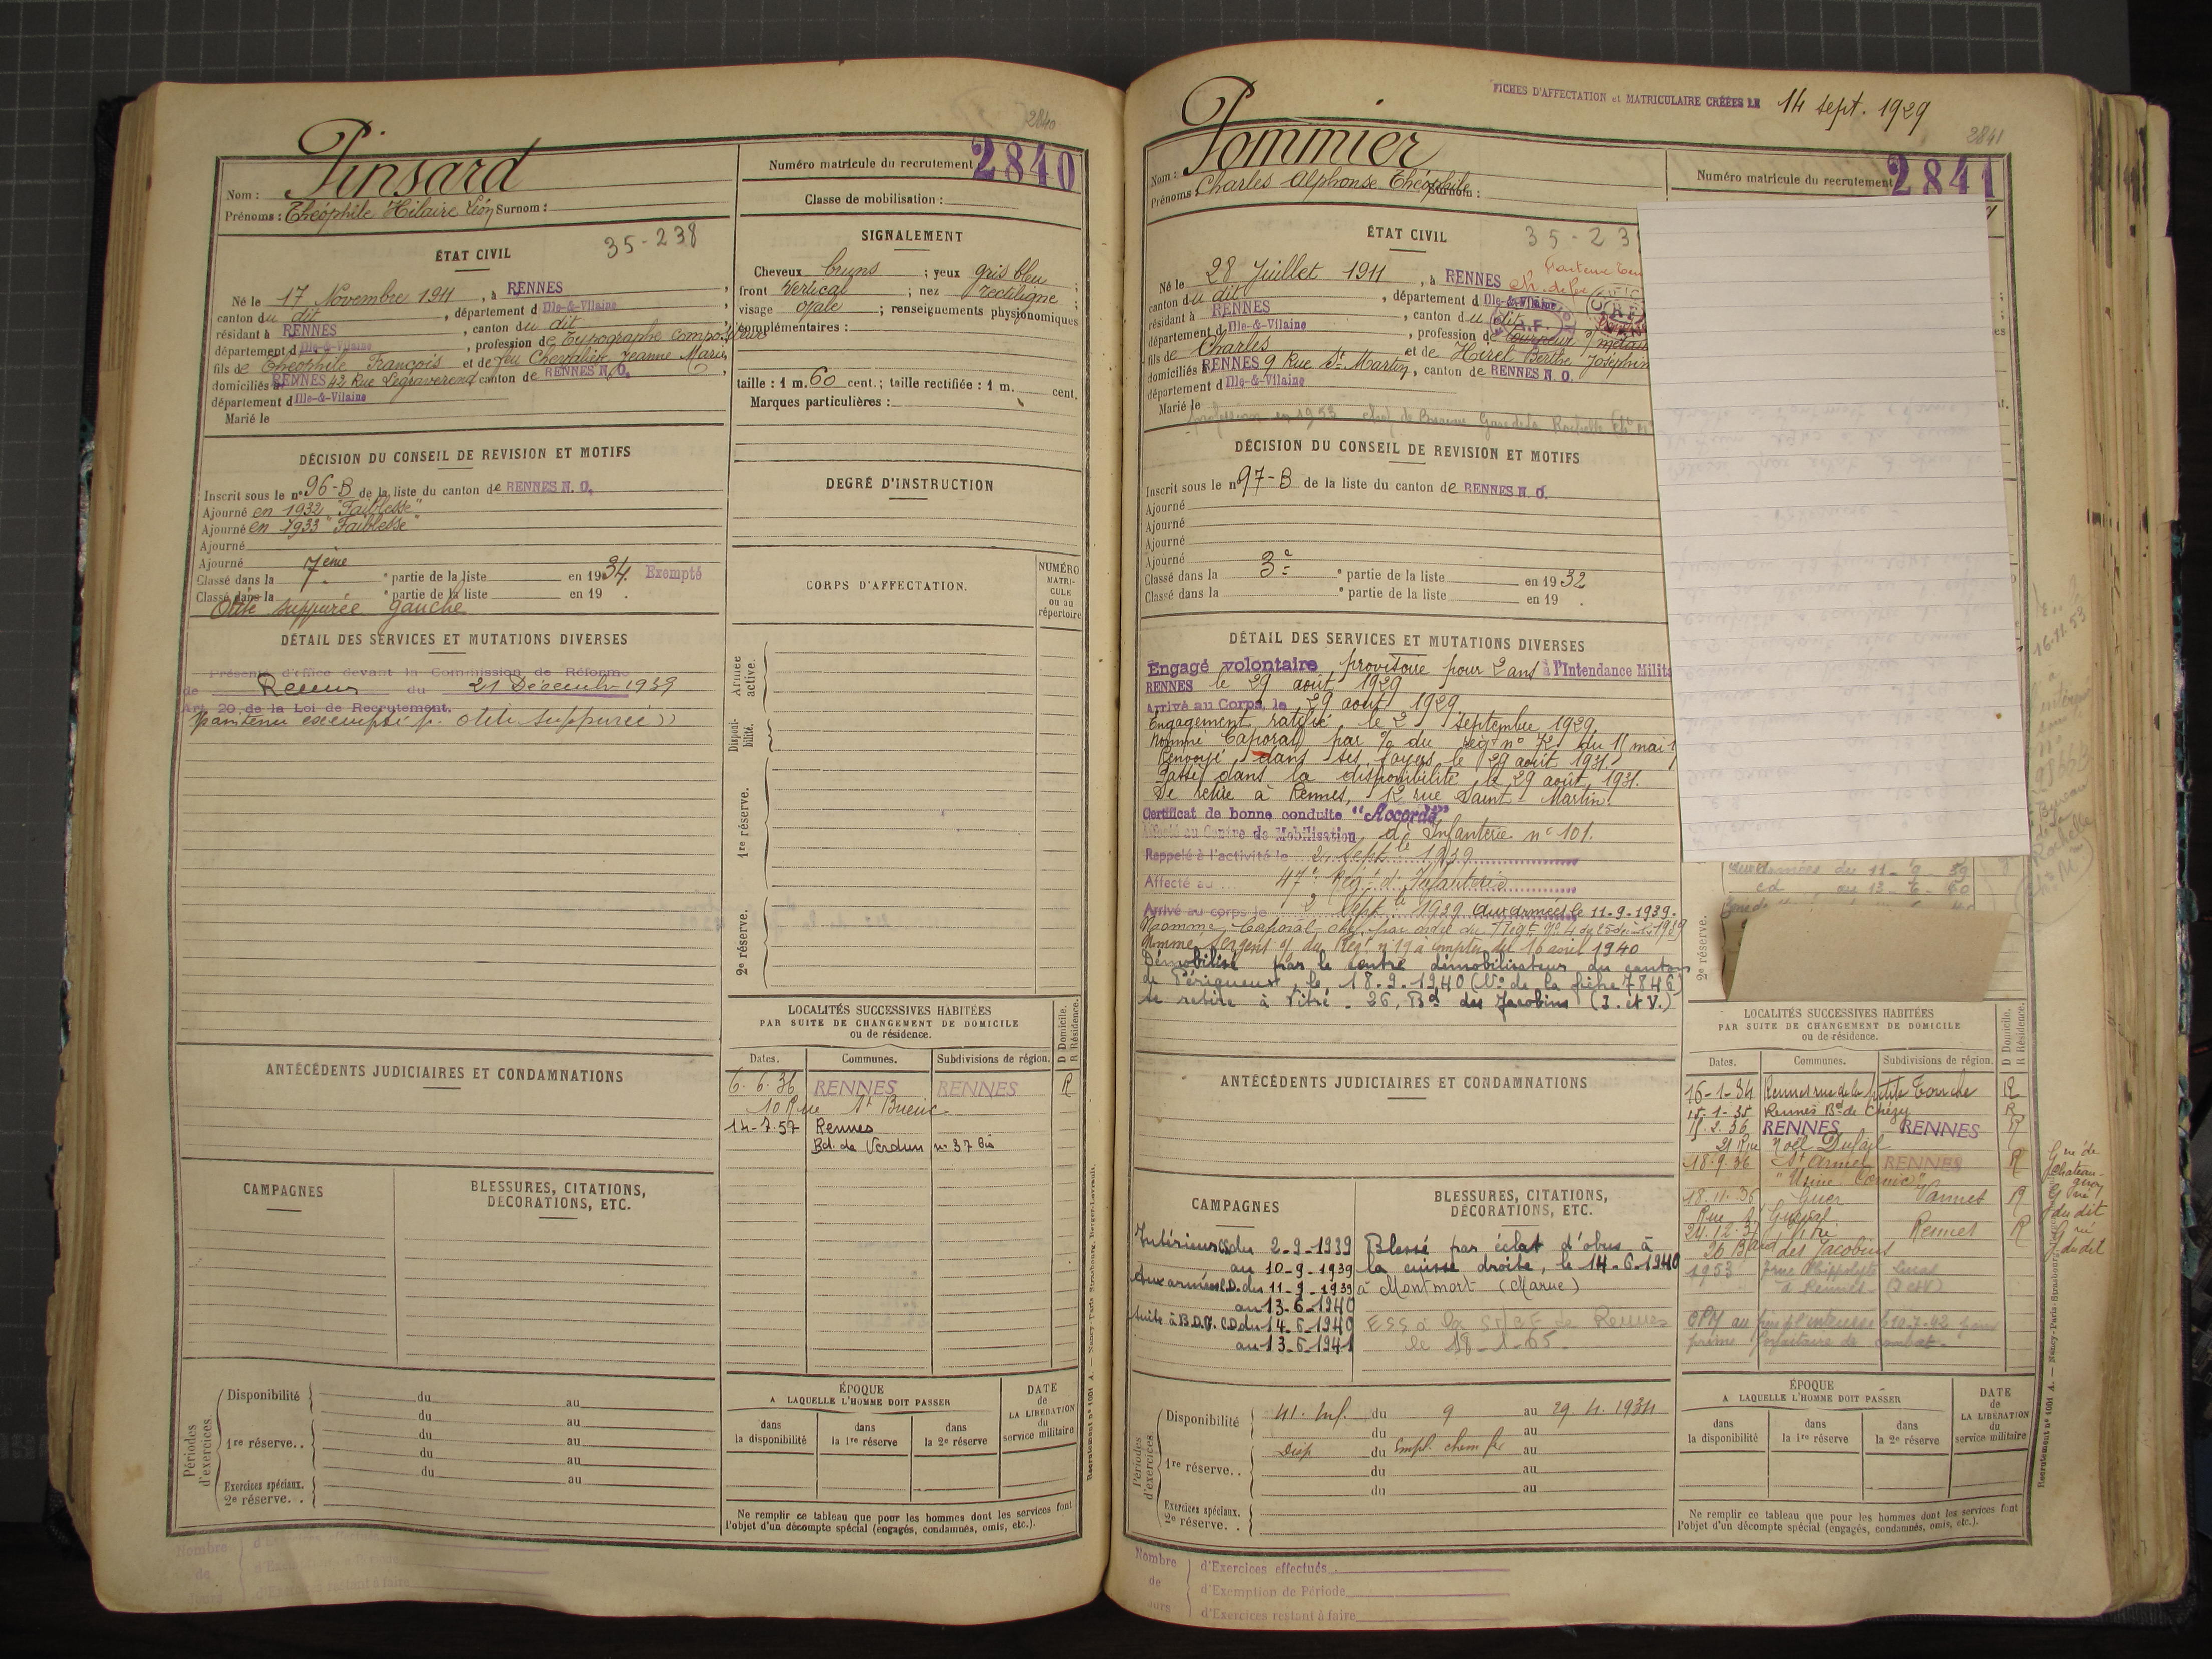 2840
Pinsard
Nom :
Prénoms : Théophile Hilaire Léon Surnom :
Numéro matricule du recrutement 2840
Classe de mobilisation :
ÉTAT CIVIL
35-238
Né le 17 Novembre 1911, à RENNES
canton du dit, département d Ille-&-Vilaine
résidant à RENNES, canton du dit
département d Ille-&-Vilaine, profession de typographe compositeur
fils de Théophile François et de feu Chevalier Jeanne Marie
domiciliés à RENNES 42 Rue Legraverend canton de RENNES N.O.
département d Ille-&-Vilaine
Marié le
SIGNALEMENT
Cheveux bruns ; yeux gris bleu ;
front vertical ; nez rectiligne ;
visage ovale ; renseignements physionomiques
complémentaires :
taille : 1 m. 60 cent. ; taille rectifiée : 1 m. cent.
Marques particulières :
DÉCISION DU CONSEIL DE REVISION ET MOTIFS
Inscrit sous le n° 96-B de la liste du canton de RENNES N. O.
Ajourné en 1932 "Faiblesse"
Ajourné en 1933 "Faiblesse"
Ajourné
Ajourné
Classé dans la 7ème partie de la liste en 1934. Exempté
Classé dans la e partie de la liste en 19 .
Otite suppurée gauche
DEGRÉ D'INSTRUCTION
CORPS D'AFFECTATION.
NUMÉRO MATRICULE ou au répertoire
DÉTAIL DES SERVICES ET MUTATIONS DIVERSES
Présenté d'office devant la Commission de Réforme
de Rennes du 21 Décembre 1939
Art. 20 de la Loi de Recrutement.
maintenu exempté p. otite suppurée
Armée active.
Disponibilité.
1re réserve.
2e réserve.
LOCALITÉS SUCCESSIVES HABITÉES
PAR SUITE DE CHANGEMENT DE DOMICILE
ou de résidence.
Dates. Communes. Subdivisions de région. D Domicile. R Résidence.
6. 6. 36 RENNES RENNES R
10 Rue St Brieuc
14-7.57 Rennes
Bd. de Verdun n° 37 bis
ANTÉCÉDENTS JUDICIAIRES ET CONDAMNATIONS
CAMPAGNES
BLESSURES, CITATIONS,
DÉCORATIONS, ETC.
Périodes d'exercices.
Disponibilité du au
du au
1re réserve. . du au
du au
Exercices spéciaux. 2e réserve. . du au
ÉPOQUE
A LAQUELLE L'HOMME DOIT PASSER
dans la disponibilité
dans la 1re réserve
dans la 2e réserve
DATE de LA LIBÉRATION du service militaire
Ne remplir ce tableau que pour les hommes dont les services font
l'objet d'un décompte spécial (engagés, condamnés, omis, etc.).
Nombre
de
FICHES D'AFFECTATION et MATRICULAIRE CRÉÉES LE 14 sept. 1929
2841
Pommier
Nom :
Prénoms : Charles Alphonse Théophile Surnom :
Numéro matricule du recrutement 2841
ÉTAT CIVIL
35-23
Né le 28 Juillet 1911, à RENNES
canton du dit, département d Ille-&-Vilaine
résidant à RENNES, canton du dit
département d Ille-&-Vilaine, profession de tourneur s/ métaux
fils de Charles et de Hirel Berthe Joséphin
domiciliés RENNES 9 Rue St Martin, canton de RENNES N O.
département d Ille-&-Vilaine
Marié le
profession en 1953 chef de Bureau Gare de la Rochelle
DÉCISION DU CONSEIL DE REVISION ET MOTIFS
Inscrit sous le n° 97-B de la liste du canton de RENNES N. O.
Ajourné
Ajourné
Ajourné
Ajourné
Classé dans la 3e partie de la liste en 1932
Classé dans la e partie de la liste en 19 .
DÉTAIL DES SERVICES ET MUTATIONS DIVERSES
Engagé volontaire provisoire pour 2 ans à l'Intendance Milit
RENNES le 29 août 1929
Arrivé au Corps, le 29 août 1929
Engagement ratifié le 2 septembre 1929.
Nommé Caporal par % du régt n° 72 du 11 mai 1
Renvoyé dans ses foyers le 29 août 1931.
Passé dans la disponibilité le 29 août 1931.
Se retire à Rennes, 12 rue Saint Martin.
Certificat de bonne conduite "Accordé"
Affecté au Centre de Mobilisation d'Infanterie n° 101.
Rappelé à l'activité le 2 Septbre 1939
Affecté au 47e Régt d'Infanterie
Arrivé au corps le 2 Septbre 1939 aux armées le 11-9-1939.
Nommé Caporal-chef par ordre du Régt N° 4 du 25 déc 1939
Nommé Sergent % du Régt n° 19 à compter du 16 avril 1940
Démobilisé par le centre démobilisateur du canton
de Périgueux, le 18.9.1940 (N° de la fiche 7846)
se retire à Vitré - 26, Bd des Jacobins (I. et V.)
aux armées du 11-9-39
2e réserve.
LOCALITÉS SUCCESSIVES HABITÉES
PAR SUITE DE CHANGEMENT DE DOMICILE
ou de résidence.
Dates. Communes. Subdivisions de région. D Domicile. R Résidence.
16-1-34 Rennes rue de la Petite Touche R
15-1-35 Rennes Bd de Chézy R
11.2.36 RENNES RENNES R
21 Rue Noël Dufail
18.9.36 St Armel RENNES R
18.11.36 Guer Vannes R
24.12.37 Vitré Rennes R
26 Bard des Jacobins
1953 7 rue Hippolyte Lucas
à Rennes (I et V)
ANTÉCÉDENTS JUDICIAIRES ET CONDAMNATIONS
CAMPAGNES
Intérieur CS du 2-9-1939
au 10-9-1939
Aux armées C.D. du 11-9-1939
au 13-6-1940
Suite à B.D.G. C.D. du 14-6-1940
au 13-6-1941
BLESSURES, CITATIONS,
DÉCORATIONS, ETC.
Blessé par éclat d'obus à
la cuisse droite, le 14-6-1940
à Montmort (Marne)
ESS à la SNCF de Rennes
le 18-1-65.
Périodes d'exercices.
Disponibilité 41. Inf. du 9 au 29.4.1934
du au
1re réserve. . Disp du Empl. chem fer au
du au
du au
Exercices spéciaux. 2e réserve. .
ÉPOQUE
A LAQUELLE L'HOMME DOIT PASSER
dans la disponibilité
dans la 1re réserve
dans la 2e réserve
DATE de LA LIBÉRATION du service militaire
Ne remplir ce tableau que pour les hommes dont les services font
l'objet d'un décompte spécial (engagés, condamnés, omis, etc.).
Nombre
de
jours
d'Exercices effectués
d'Exemption de Période
d'Exercices restant à faire